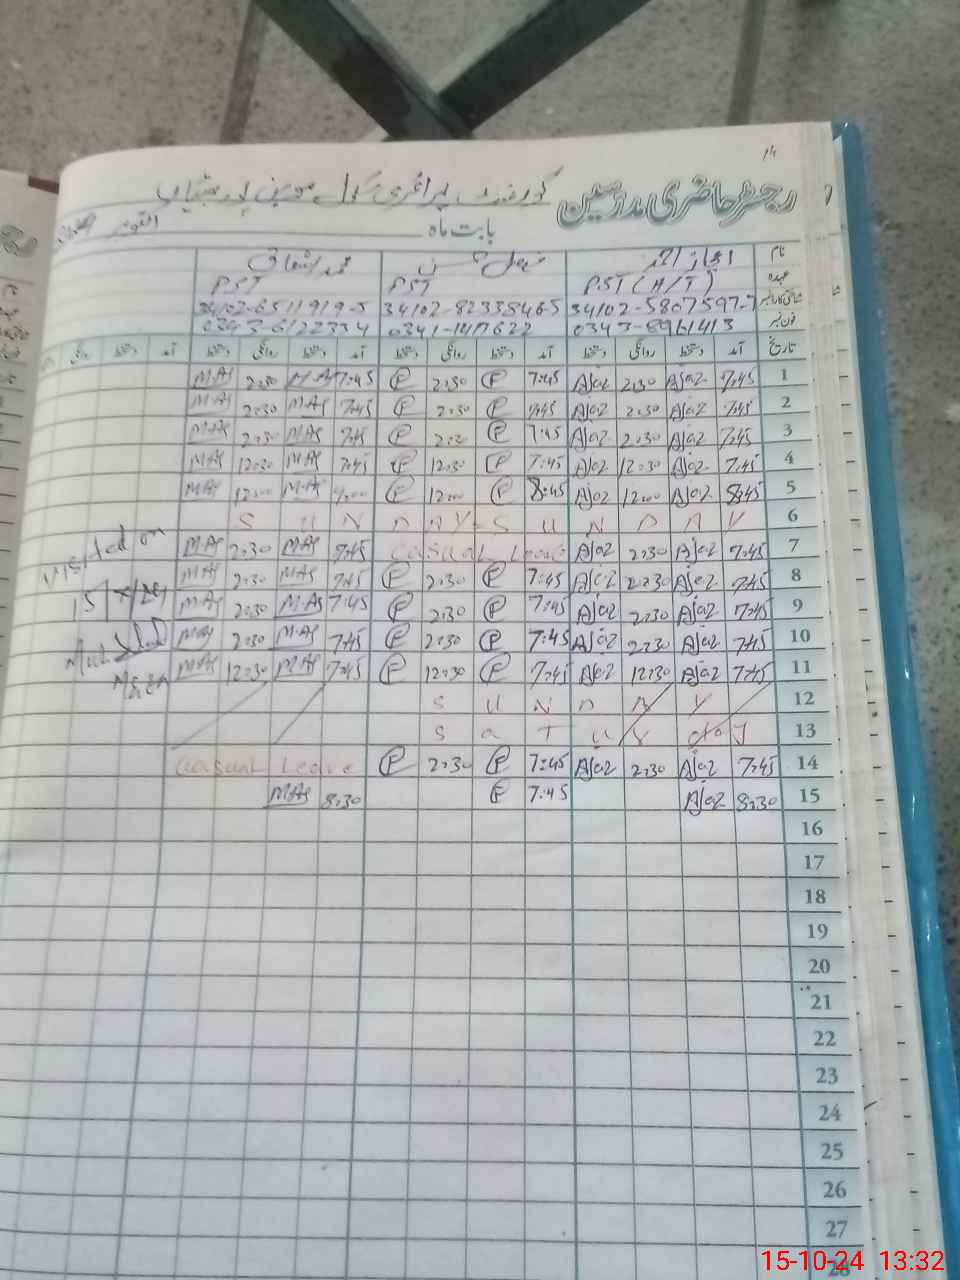 رجسٹر حاضری مدرسین
گورنمنٹ پرائمری سکول
بابت ماہ اکتوبر
نام اعجاز احمد
عہدہ PST (H/T) PST PST
شناختی کارڈ نمبر 34102-5807597-7 34102-8233846-5 34102-6511919-5
فون نمبر 0343-8961413 0341-1417622 0343-6122334
تاریخ آمد دستخط روانگی دستخط آمد دستخط روانگی دستخط آمد دستخط روانگی دستخط آمد دستخط روانگی
1 7:45 Ajaz 2:30 Ajaz 7:45 P 2:30 P 7:45 MAS 2:30 MAS
2 7:45 Ajaz 2:30 Ajaz 7:45 P 2:30 P 7:45 MAS 2:30 MAS
3 7:45 Ajaz 2:30 Ajaz 7:45 P 2:30 P 7:45 MAS 2:30 MAS
4 7:45 Ajaz 12:30 Ajaz 7:45 P 12:30 P 7:45 MAS 12:30 MAS
5 8:45 Ajaz 12:00 Ajaz 8:45 P 12:00 P MAS 12:00 MAS
6 S U N D A Y - S U N D A Y
7 7:45 Ajaz 2:30 Ajaz Casual Leave 7:45 MAS 2:30 MAS
8 7:45 Ajaz 2:30 Ajaz 7:45 P 2:30 P 7:45 MAS 2:30 MAS
9 7:45 Ajaz 2:30 Ajaz 7:45 P 2:30 P 7:45 MAS 2:30 MAS
10 7:45 Ajaz 2:30 Ajaz 7:45 P 2:30 P 7:45 MAS 2:30 MAS
11 7:45 Ajaz 12:30 Ajaz 7:45 P 12:30 P 7:45 MAS 12:30 MAS
12 S U N D A Y
13 S a T u
14 7:45 Ajaz 2:30 Ajaz 7:45 P 2:30 P Casual Leave
15 8:30 Ajaz 7:45 P 8:30 MAS
16
17
18
19
20
21
22
23
24
25
26
27
28
visited on
15/X/24
MEA
15-10-24 13:32